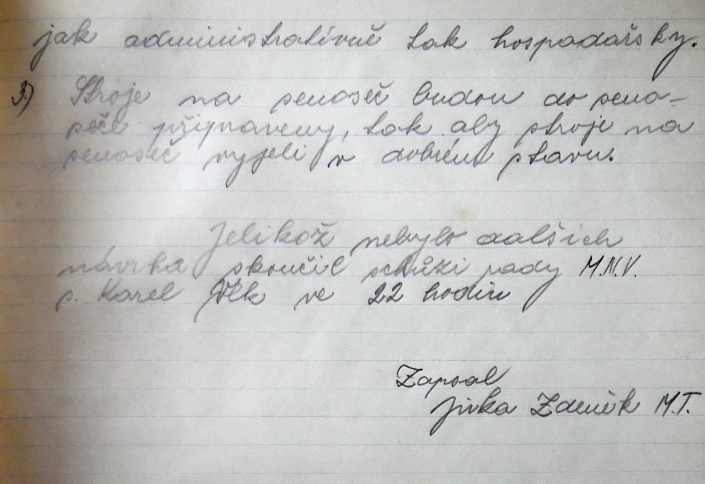 jak administrativně tak hospodářsky.
3) Stroje na senoseč budou do seno-
seče připraveny, tak aby stroje na
senoseč vyjeli v dobrém stavu.
Jelikož nebylo dalších
návrhů skončil schůzi rady M.N.V.
s. Karel Vlk ve 22 hodin
Zapsal
Jirka Zdeněk M.T.